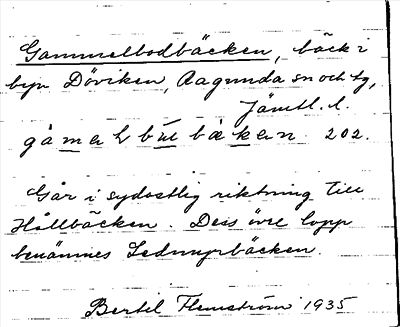 Gammelbodbäcken, bäck i
byn Döviken, Ragunda sn och tg,
Jämtl. l.
202.
Går i sydostlig riktning till
Hållbäcken. Dess övre lopp
benämnes Ledmyrbäcken.
Bertil Flemström 1935